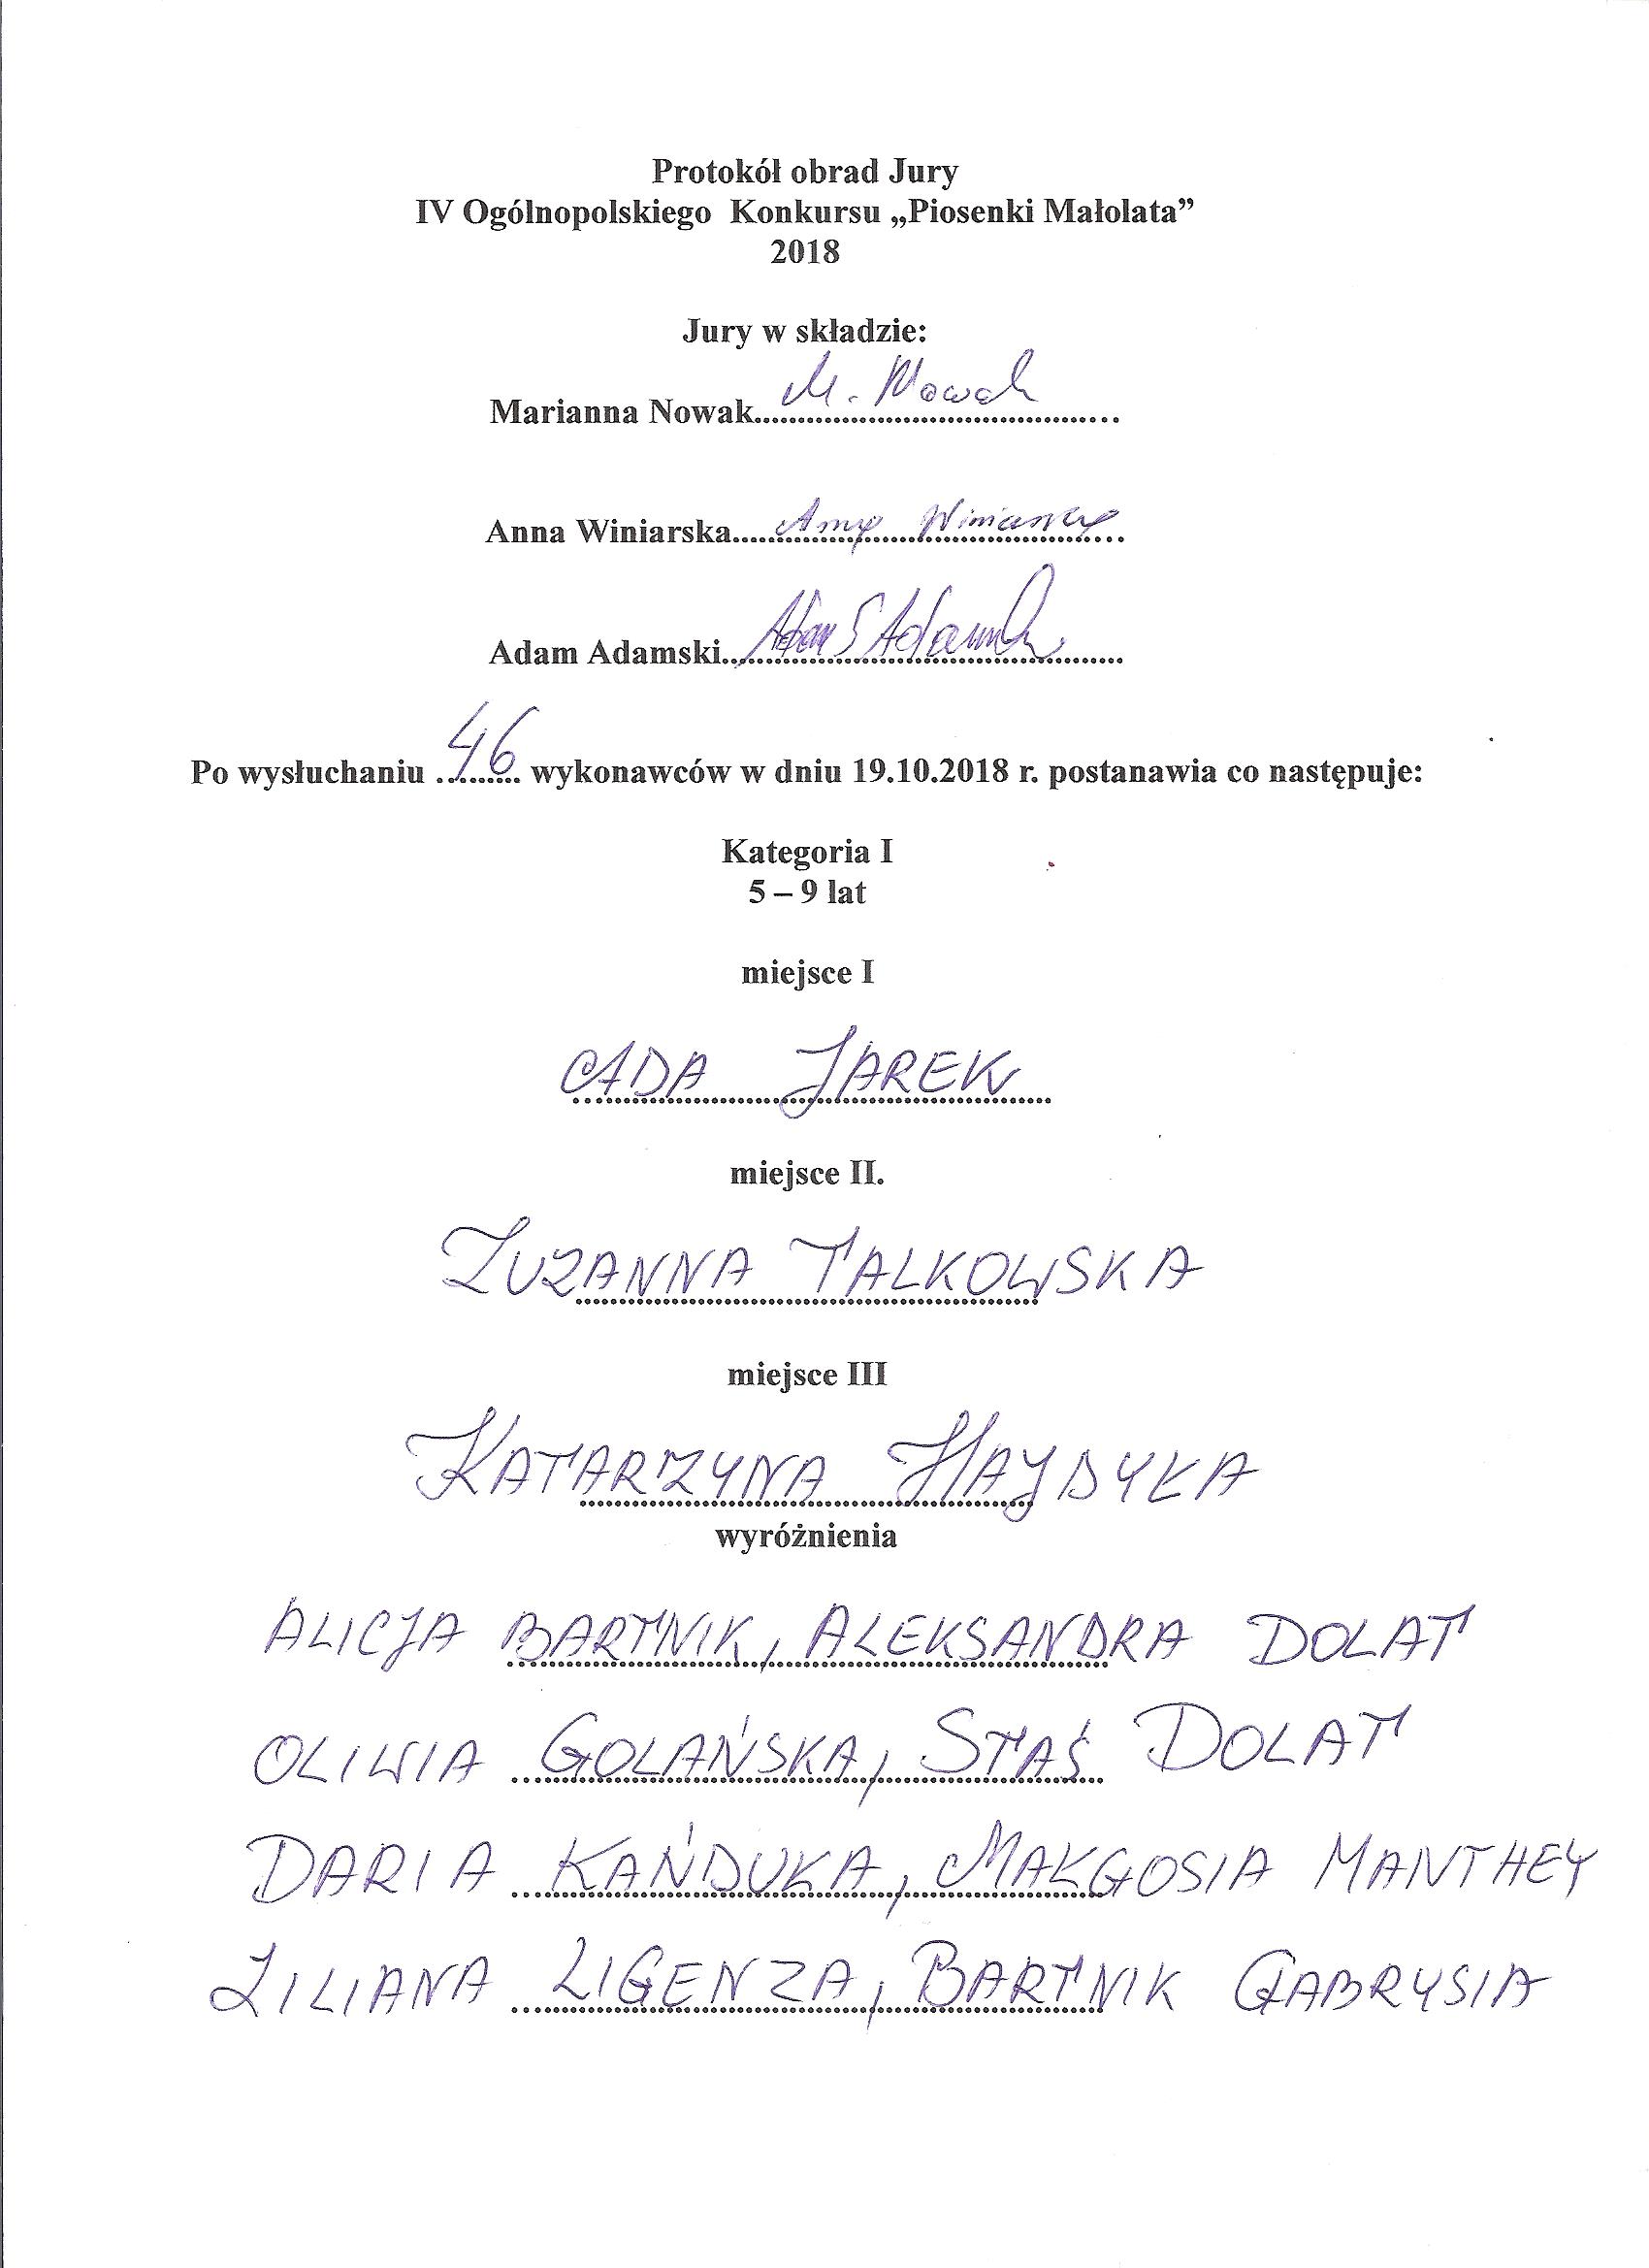 Protokół obrad Jury
IV Ogólnopolskiego Konkursu „Piosenki Małolata”
2018
Jury w składzie:
Marianna Nowak.......M. Nowak.......
Anna Winiarska.......Anna Winiarska.......
Adam Adamski.......Adam Adamski.......
Po wysłuchaniu ...46... wykonawców w dniu 19.10.2018 r. postanawia co następuje:
Kategoria I
5 – 9 lat
miejsce I
ADA JAREK
miejsce II.
ZUZANNA TALKOWSKA
miejsce III
KATARZYNA HAJDYŁA
wyróżnienia
ALICJA BARTNIK, ALEKSANDRA DOLAT
OLIWIA GOLAŃSKA, STAŚ DOLAT
DARIA KAŃDUŁA, MAŁGOSIA MANTHEY
LILIANA LIGENZA, BARTNIK GABRYSIA